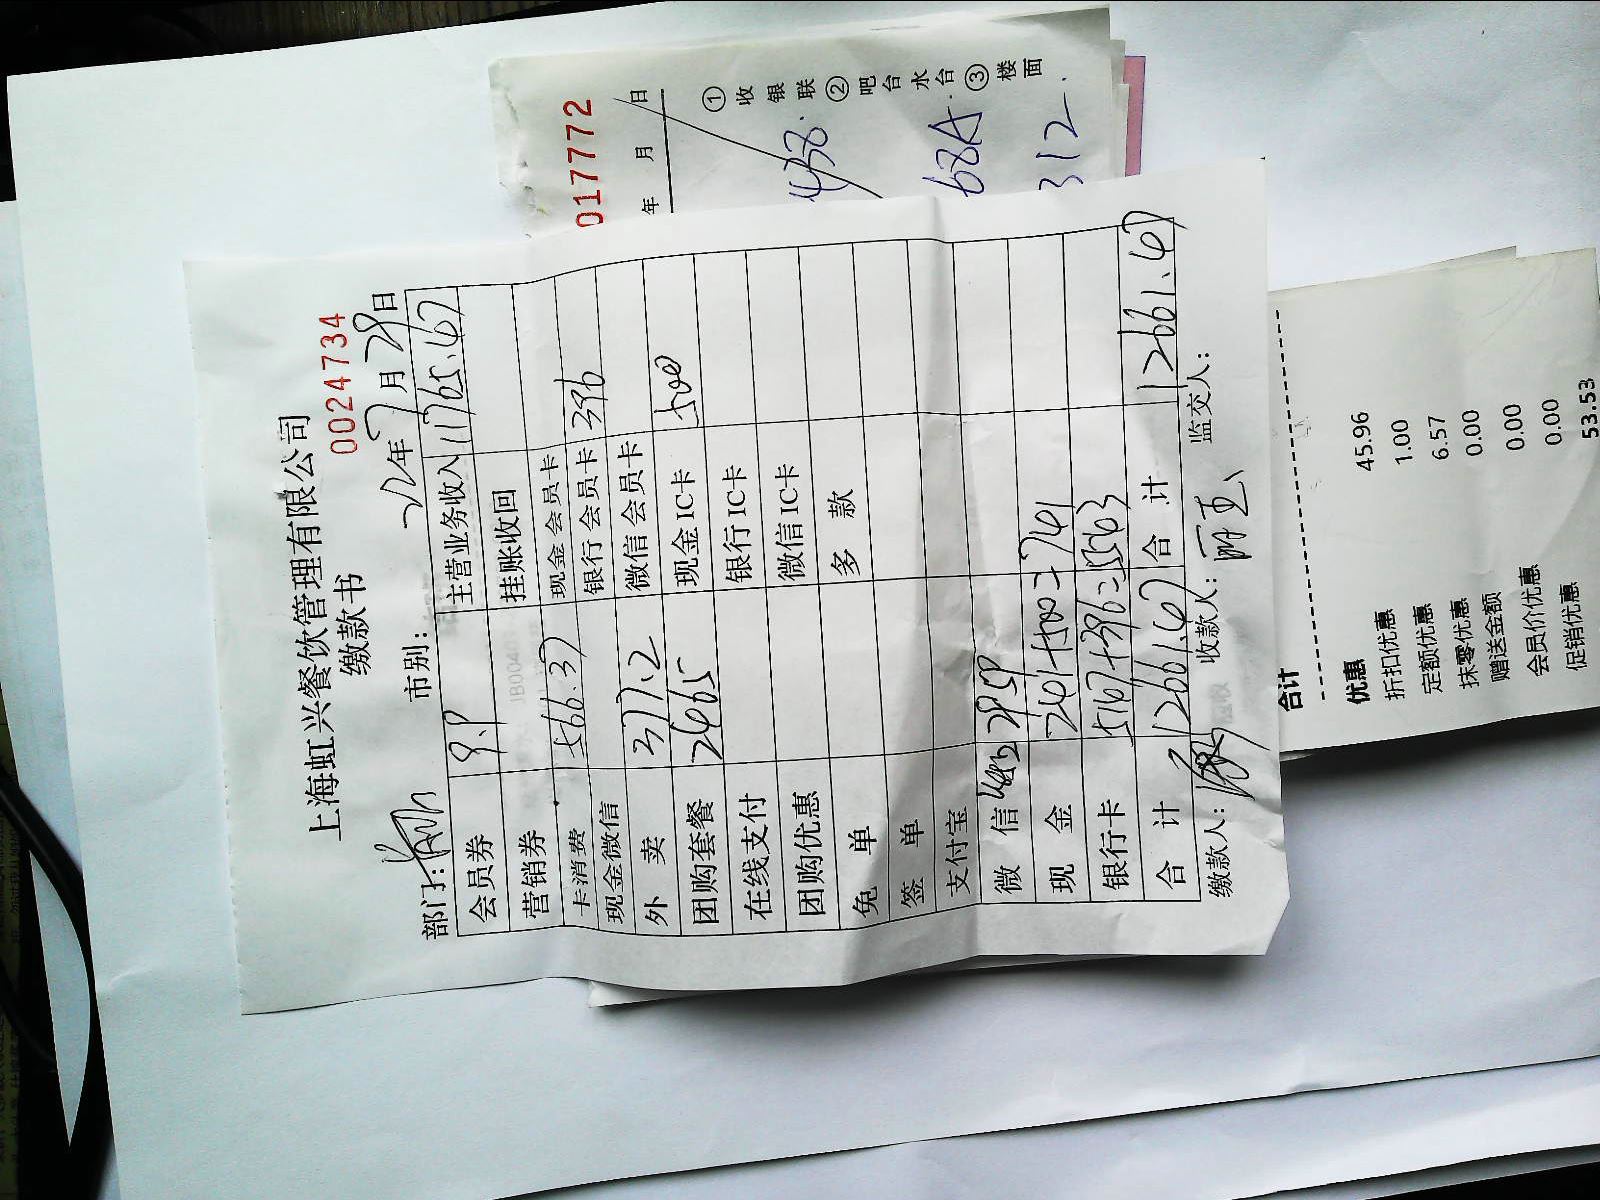 上海虹兴餐饮管理有限公司
缴款书 0024734
部门: 市别: 22年7月29日
会员券 9.9 主营业务收入 11765.67
营销券 挂账收回
卡消费 566.37 现金会员卡
现金微信 银行会员卡 396
外 卖 377.2 微信会员卡
团购套餐 2465 现金IC卡 500
在线支付 银行IC卡
团购优惠 微信IC卡
免 单 多 款
签 单
支付宝
微 信
现 金 241+500=741
银行卡 5167+396=5563
合 计 12661.67 合 计 12661.67
缴款人: 收款人: 监交人:
017772
年 月 日
①收银联②吧台水台③楼面
68A
312
合计
优惠
折扣优惠 45.96
定额优惠 1.00
抹零优惠 6.57
赠送金额 0.00
会员价优惠 0.00
促销优惠 0.00
53.53